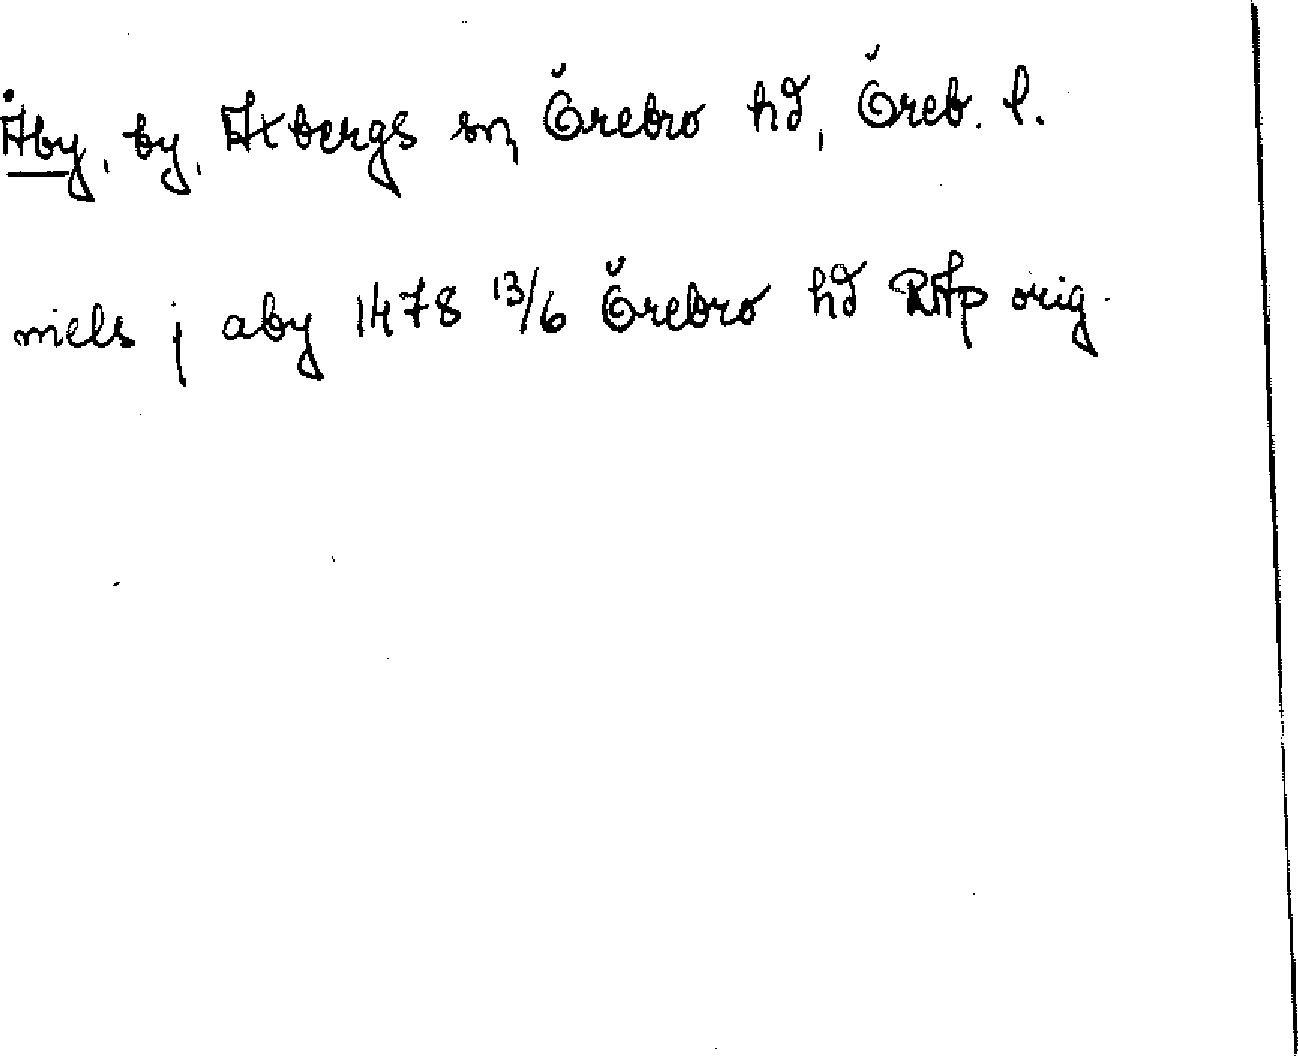 Åby, by, Axbergs sn, Örebro hd, Öreb. l.
niels j aby 1478 13/6 Örebro hd RAp orig.